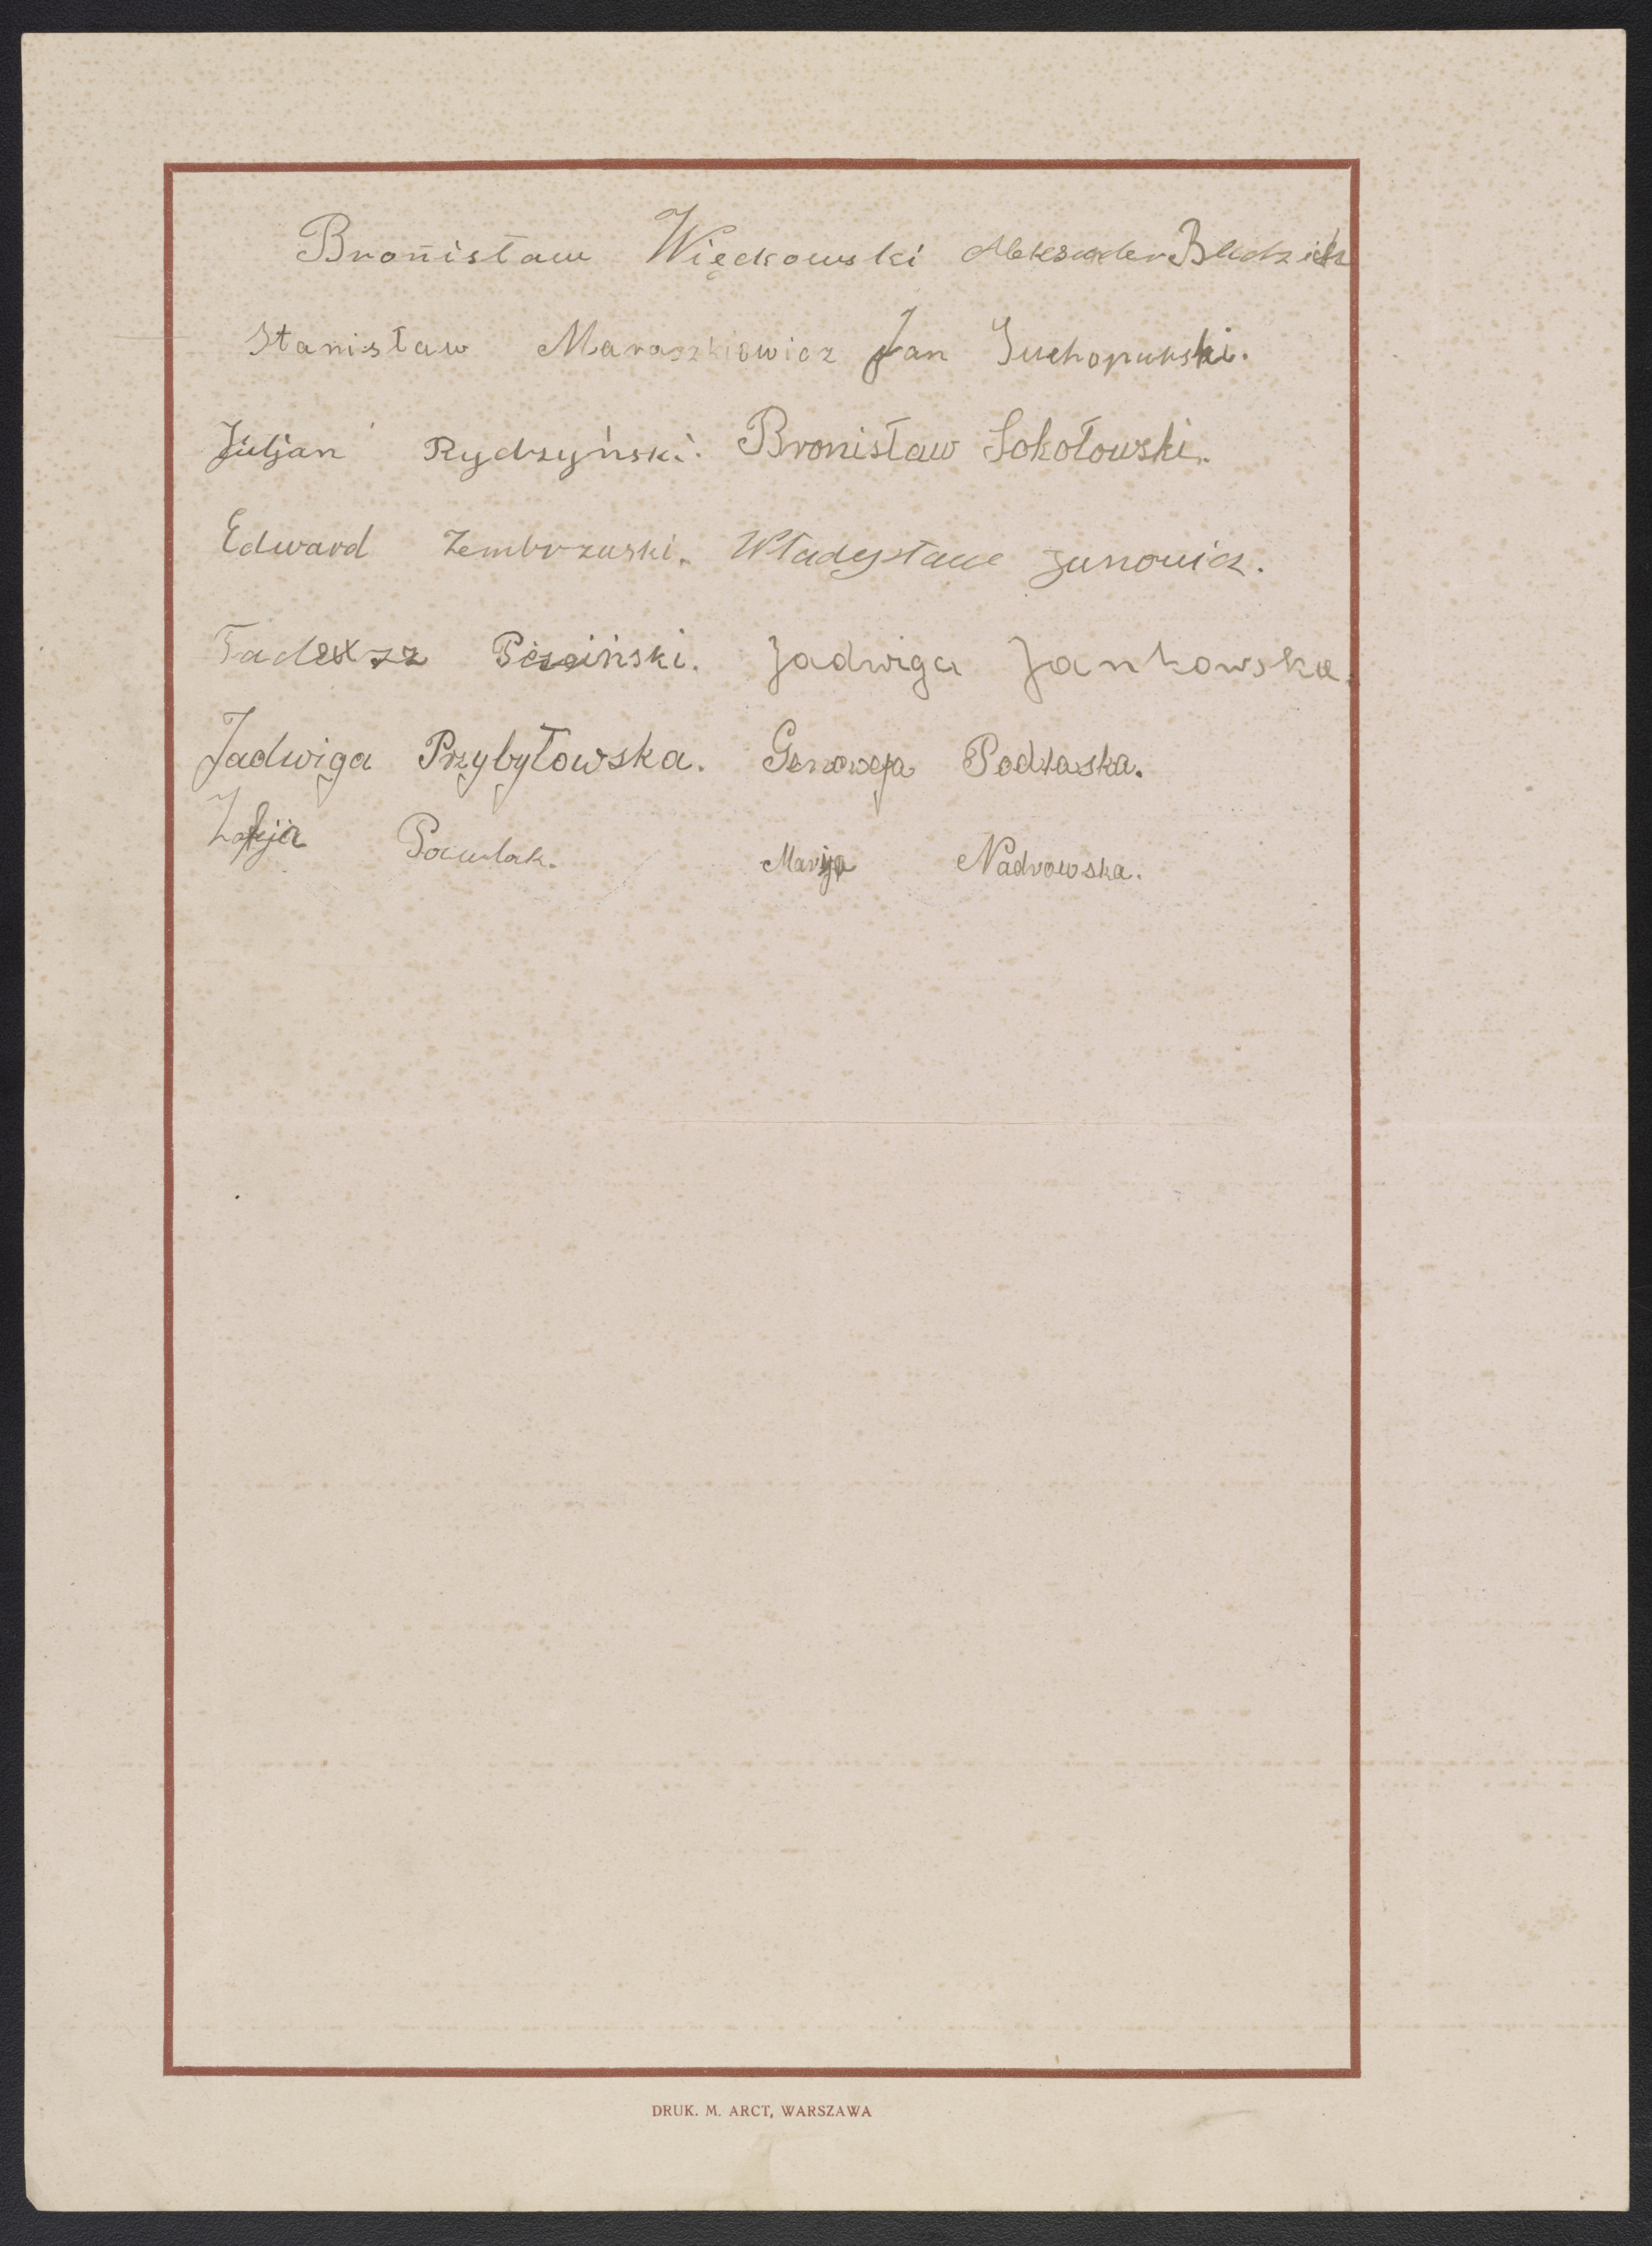 Bronisław Więckowski Aleksander
Stanisław Maraszkiewicz Jan
Juljan Rydzyński. Bronisław Sokołowski.
Edward Zembrzuski. Władysław
Jadwiga Jankowska.
Jadwiga Przybyłowska. Genowefa Podlaska.
Zofja Pawlak. Marija Nadrowska.
DRUK. M. ARCT, WARSZAWA